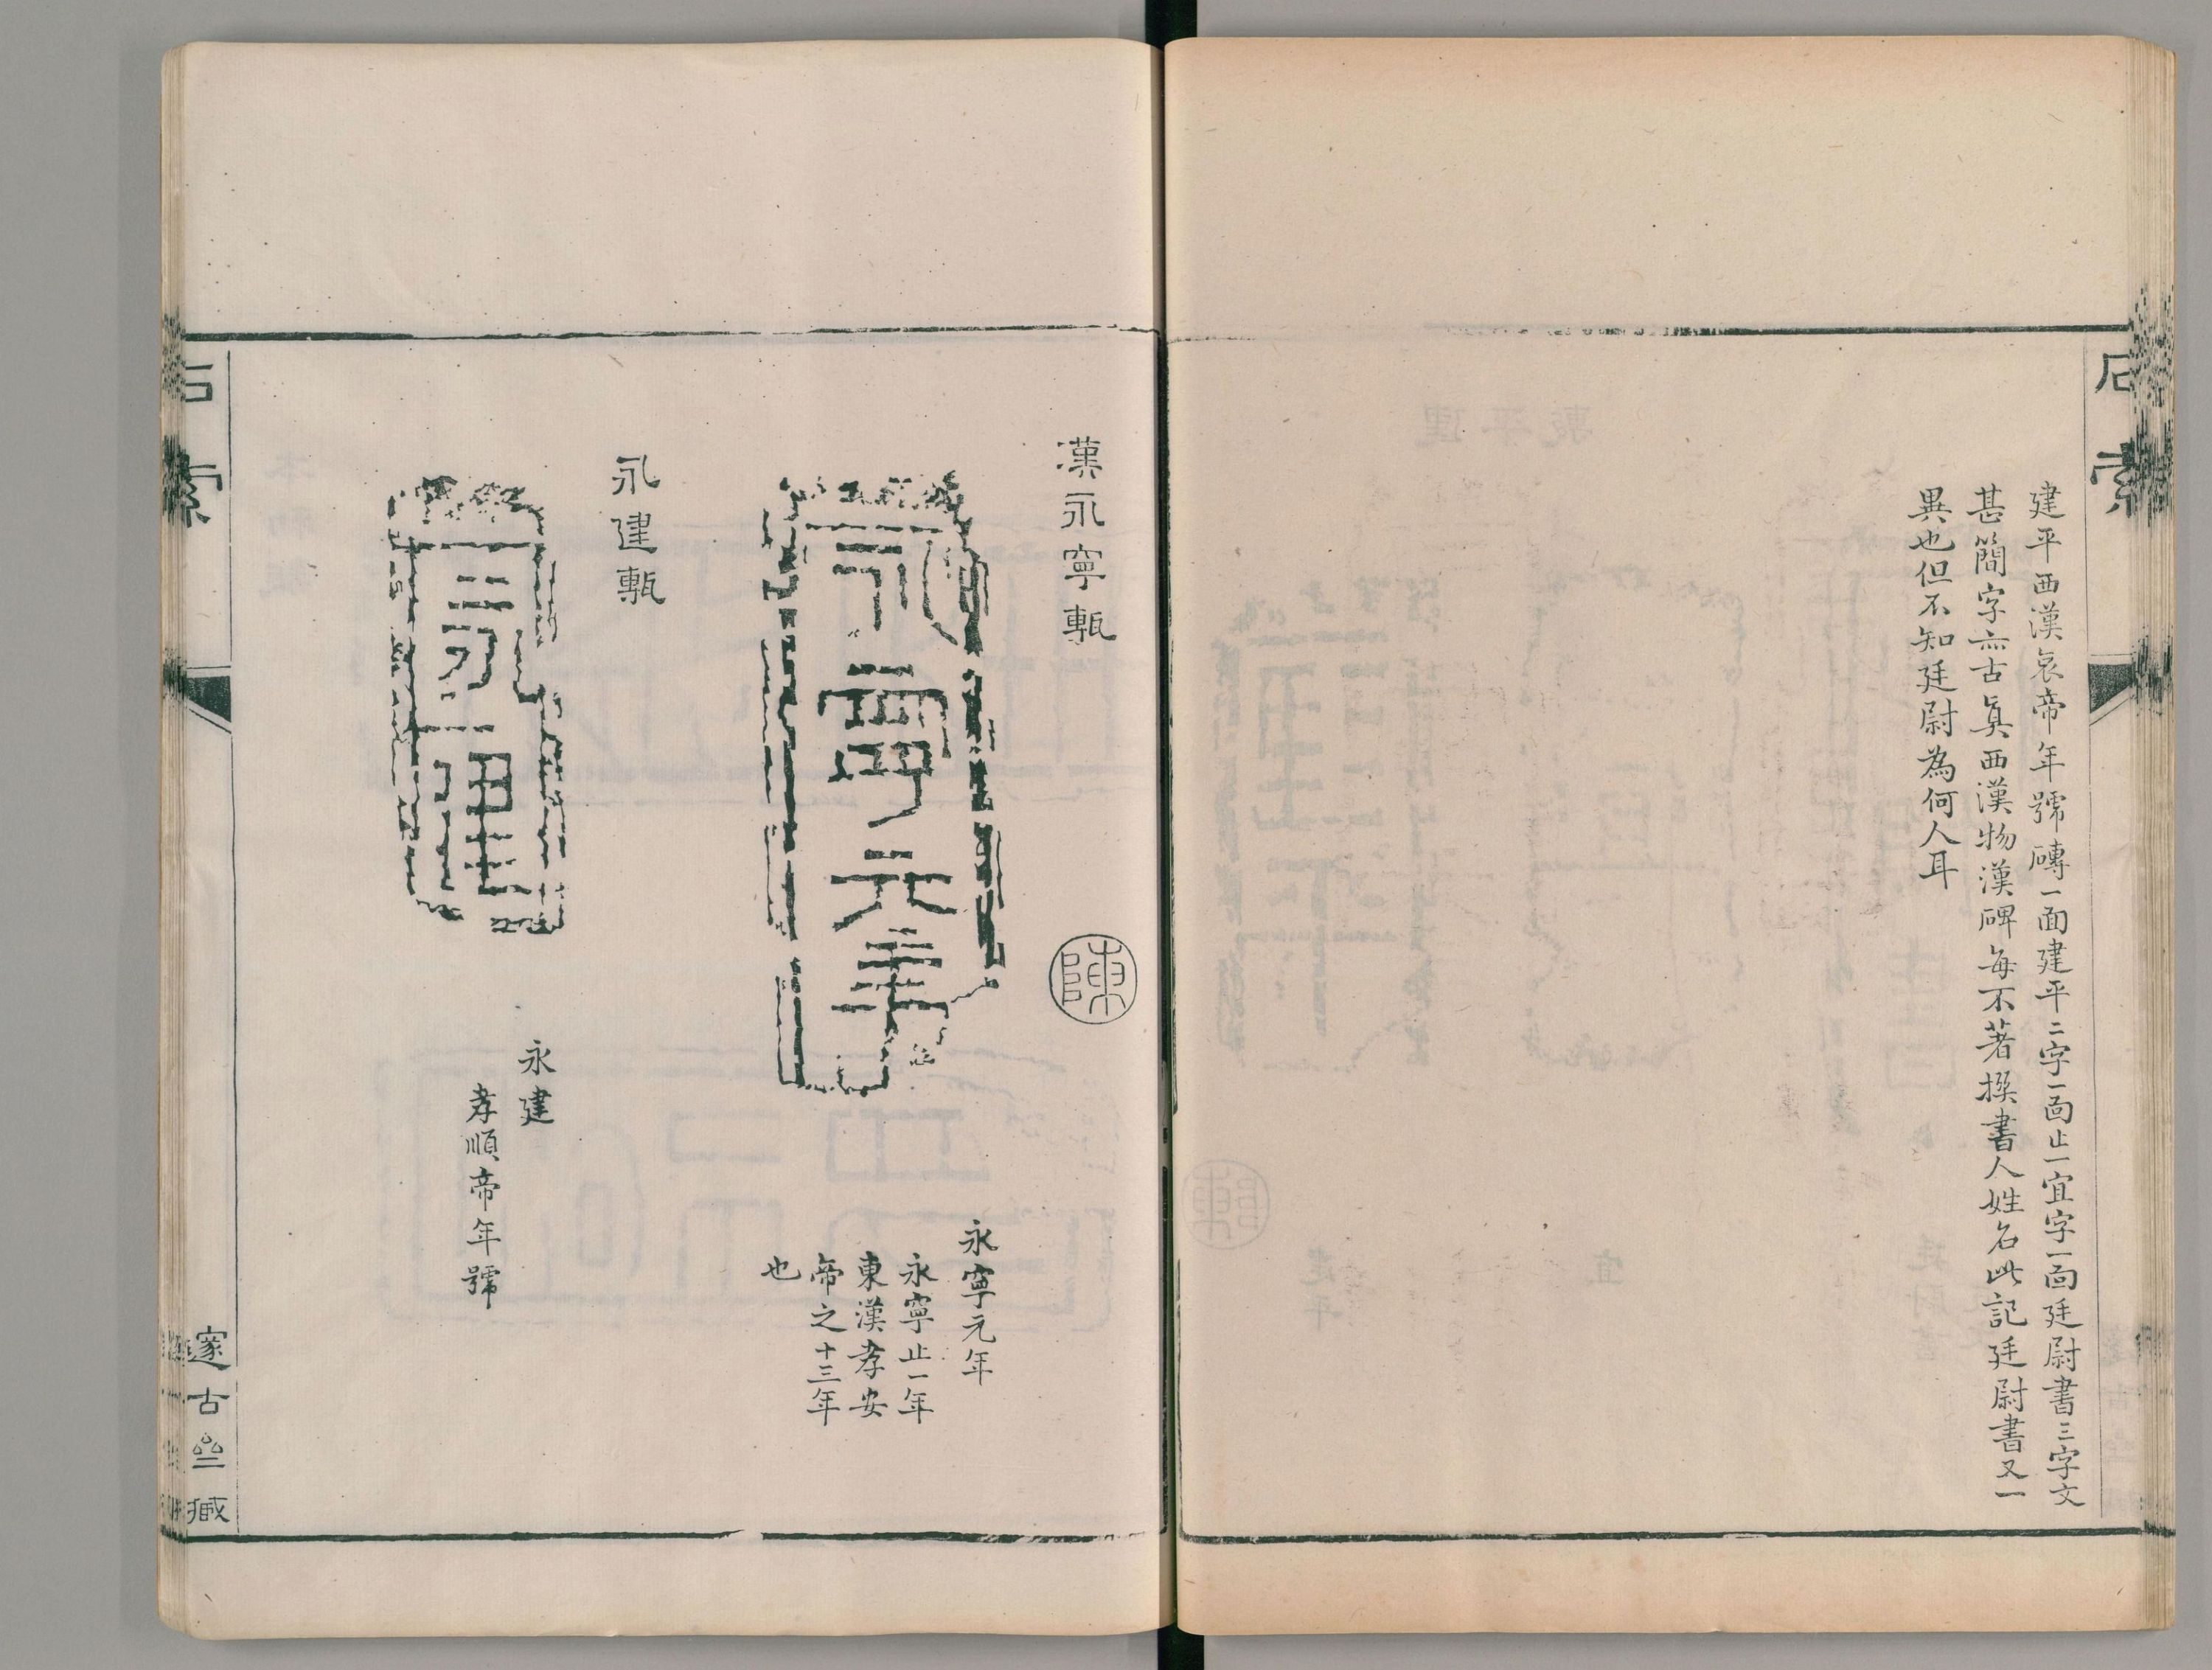 石索
建平西漢哀帝年號磚一面建平二字一面止一宜字一面廷尉書三字文
甚簡字亦古真西漢物漢碑每不著撰書人姓名此記廷尉書又一
異也但不知廷尉為何人耳
漢永寧甎
陳
永寧元年
永寧元年
永寧止一年
東漢孝安
帝之十三年
也
永建甎
永建
永建
孝順帝年號
石索
邃古齋藏